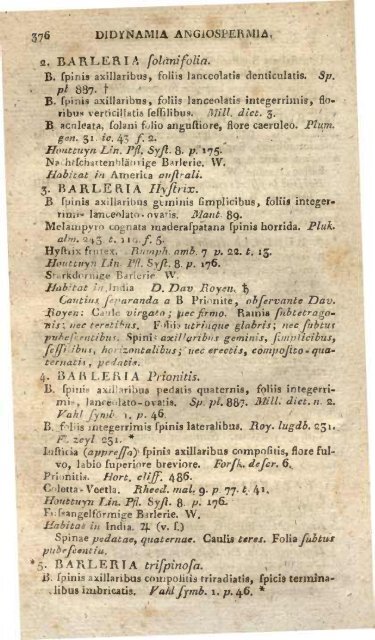 376 DIDYNAMIA ANGIOSPERMIA.
2. BARLERIA ſolanifolia.
B. ſpinis axillaribus, foliis lanceolatis denticulatis. Sp.
pl 887. †
B. ſpinis axillaribus, foliis lanceolatis integerrimis, flo-
ribus verticillatis ſeſſilibus. Mill. dict. 3.
B aculeata, ſolani folio anguſtiore, flore caeruleo. Plum.
gen. 31. ic. 43 f. 2.
Houttuyn Lin. Pfl. Syſt. 8. p. 175.
Nachtſchattenblättrige Barlerie. W.
Habitat in America auſtrali.
3. BARLERIA Hyſtrix.
B ſpinis axillaribus geminis ſimplicibus, foliis integer-
rimis lanceolato-ovatis. Mant. 89.
Melampyro cognata maderaſpatana ſpinis horrida. Pluk.
alm. 243 t. 119. f. 5.
Hyſtrix frutex. Rumph. amb. 7 p. 22. t. 13.
Houttuyn Lin. Pfl. Syſt. 8. p. 176.
Starkdornige Barlerie W.
Habitat in India D. Dav Royen. ♄
Cautius ſeparanda a B Prionite, obſervante Dav.
Royen: Caule virgato; nec firmo. Ramis ſubtetrago-
nis; nec teretibus. Foliis utrinque glabris; nec ſubtus
pubeſcentibus. Spinis axillaribus geminis, ſimplicibus,
ſeſſilibus, horizontalibus; nec erectis, compoſito-qua-
ternatis, pedatis.
4. BARLERIA Prionitis.
B. ſpinis axillaribus pedatis quaternis, foliis integerri-
mis, lanceolato-ovatis. Sp. pl. 887. Mill. dict. n. 2.
Vahl ſymb. 1. p. 46.
B. foliis integerrimis ſpinis lateralibus. Roy. lugdb. 231.
Fl. zeyl 231. *
Juſticia (appreſſa) ſpinis axillaribus compoſitis, flore ful-
vo, labio ſuperiore breviore. Forſk. deſcr. 6.
Prionitis. Hort. cliff. 486.
Coletta-Veetla. Rheed. mal. 9. p 77. t. 41.
Houttuyn Lin. Pfl. Syſt. 8. p. 176.
Fuſsangelförmige Barlerie. W.
Habitat in India. ♃ (v. ſ.)
Spinae pedatae, quaternae. Caulis teres. Folia ſubtus
pubeſcentia.
*5. BARLERIA triſpinoſa.
B. ſpinis axillaribus compoſitis triradiatis, ſpicis termina-
libus imbricatis. Vahl ſymb. 1. p. 46. *